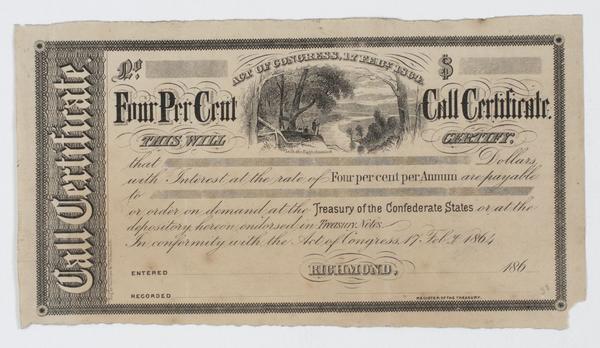 Call Certificate.
No
ACT OF CONGRESS, 17 FEBY. 1864.
$
Four Per Cent
Call Certificate.
THIS WILL
CERTIFY,
that Dollars,
with Interest at the rate of Four per cent per Annum are payable
to
or order on demand at the Treasury of the Confederate States or at the
depository hereon endorsed in Treasury Notes.
In conformity with the Act of Congress, 17 Feby 1864
ENTERED
RICHMOND,
186
RECORDED
REGISTER OF THE TREASURY.